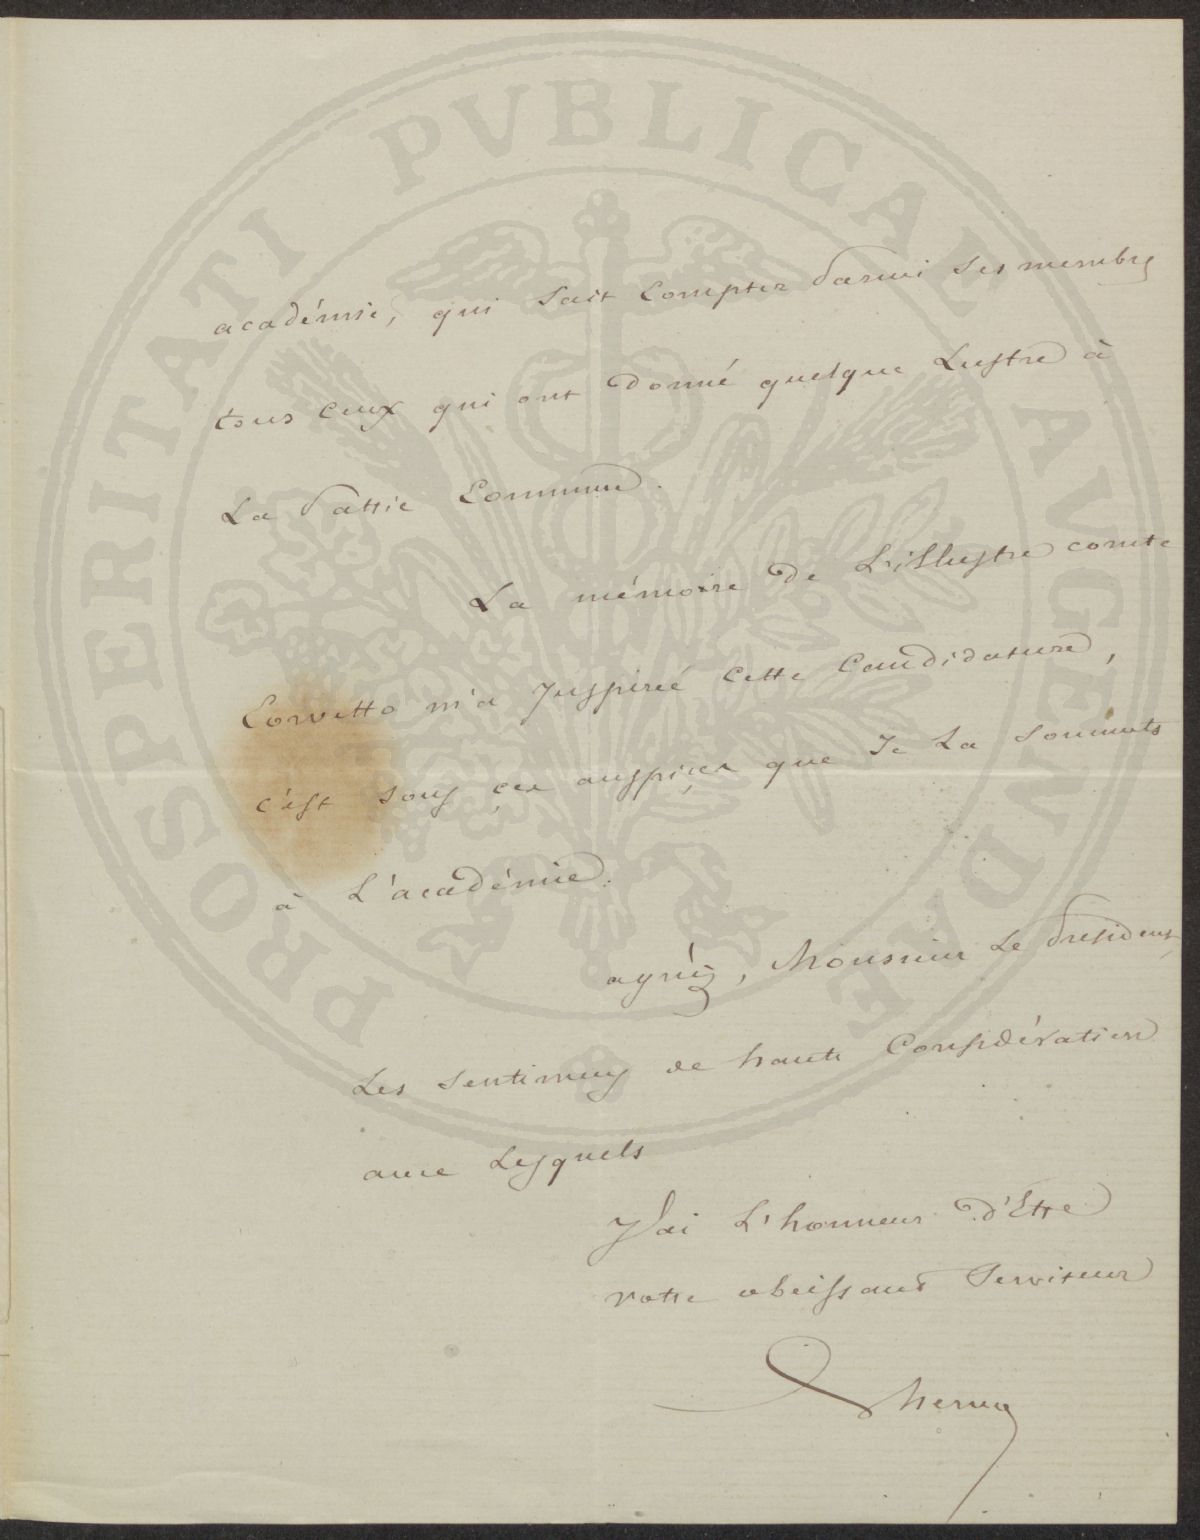 PROSPERITATI PVBLICAE AVGENDAE
académie, qui sait compter parmi ses membres
tous ceux qui ont donné quelque Lustre à
La Patrie Commune.
La mémoire de L'illustre comte
Corvetto m'a Inspiré cette Candidature,
c'est sous ces auspices que Je La soumets
à L'académie.
agréez, Monsieur Le Président,
Les sentimens de haute Considération
avec Lesquels
J'ai L'honneur d'Etre
votre obeissant Serviteur